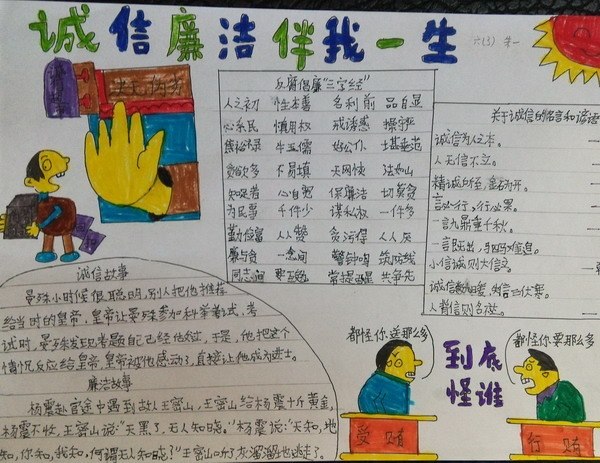 诚信廉洁伴我一生
六(3)
反腐倡廉“三字经”
人之初 性本善 名利前 品自显
心系民 慎用权 戒诱惑 操守严
牛玉儒 好公仆 堪垂范
贪欲多 不易填 天网恢 法如山
知足者 心自宽 保廉洁 切莫贪
为民事 千件少 谋私权 一件多
勤俭富 人人赞 贪污得 人人厌
廉与贪 一念间 警钟鸣 筑防线
同志间 要互勉 常提醒 共争先
关于诚信的名言和谚语
诚信为人之本。
人无信不立。
精诚所至,金石为开。
言必行,行必果。
一言九鼎重千秋。
一言既出,驷马难追。
小信诚则大信立。
人背信则名不达。
诚信故事
晏殊小时候很聪明,别人把他推荐
给当时的皇帝,皇帝让晏殊参加科举考试,考
试时,晏殊发现考题自己已经做过,于是,他把这个
情况反应给皇帝,皇帝被他感动了,直接让他成为进士。
廉洁故事
杨震赴官途中遇到故人王密山,王密山给杨震十斤黄金,
杨震不收,王密山说:“天黑了,无人知晓。”杨震说:“天知,地
知,你知,我知。何谓无人知晓?”王密山听了灰溜溜地逃走了。
都怪你送那么多
到底
怪谁
都怪你要那么多
受贿
行贿